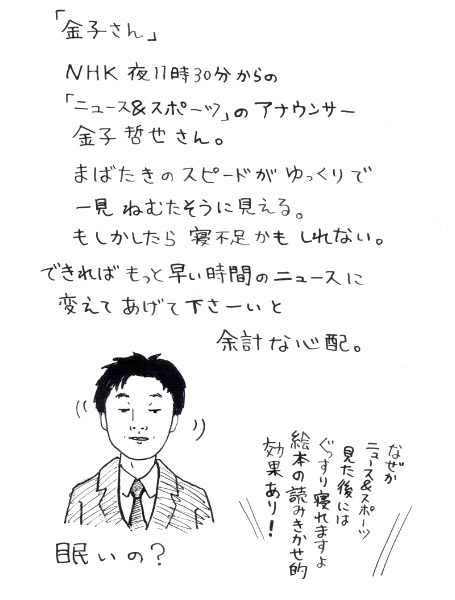 「金子さん」
NHK 夜11時30分からの
「ニュース&スポーツ」の アナウンサー
金子 哲也 さん。
まばたきの スピードが ゆっくりで
一見 ねむたそうに見える。
もしかしたら 寝不足かも しれない。
できれば もっと 早い時間の ニュースに
変えて あげて 下さーいと
余計な心配。
なぜか
ニュース&スポーツ
見た後には
ぐっすり寝れますよ
絵本の読みきかせ的
効果あり!
眠いの?